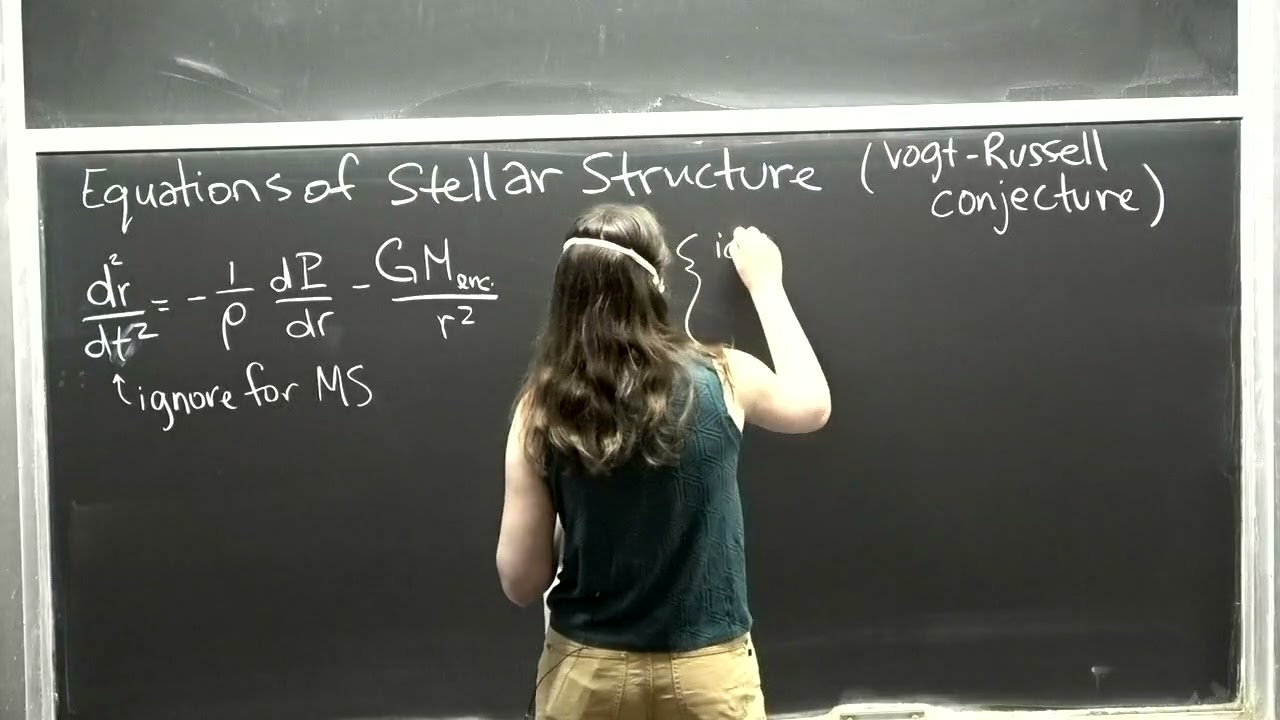 Equations of Stellar Structure (Vogt-Russell
conjecture)
d²r/dt² = - 1/ρ dP/dr - GM_enc./r²
↑ ignore for MS
{